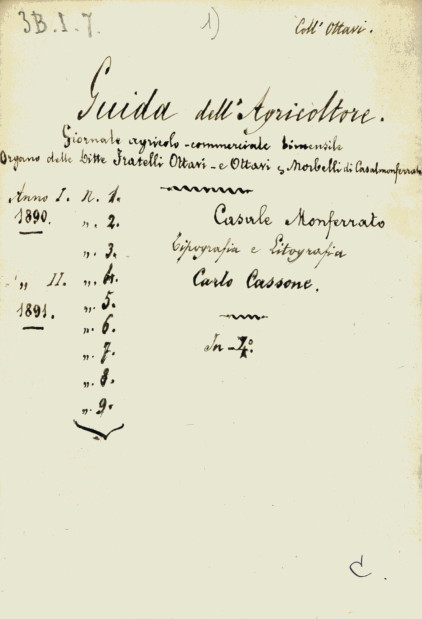 3B.I.7.
1)
Coll. Ottavi.
Guida dell'Agricoltore.
Giornale agricolo-commerciale bimensile
Organo delle Ditte Fratelli Ottavi - e Ottavi e Morbelli di Casalmonferrato
Anno I. N. 1.
1890. n. 2. Casale Monferrato
n. 3. Tipografia e Litografia
" II. n. 4. Carlo Cassone.
1891. n. 5.
n. 6.
n. 7. In-4°.
n. 8.
n. 9.
C.